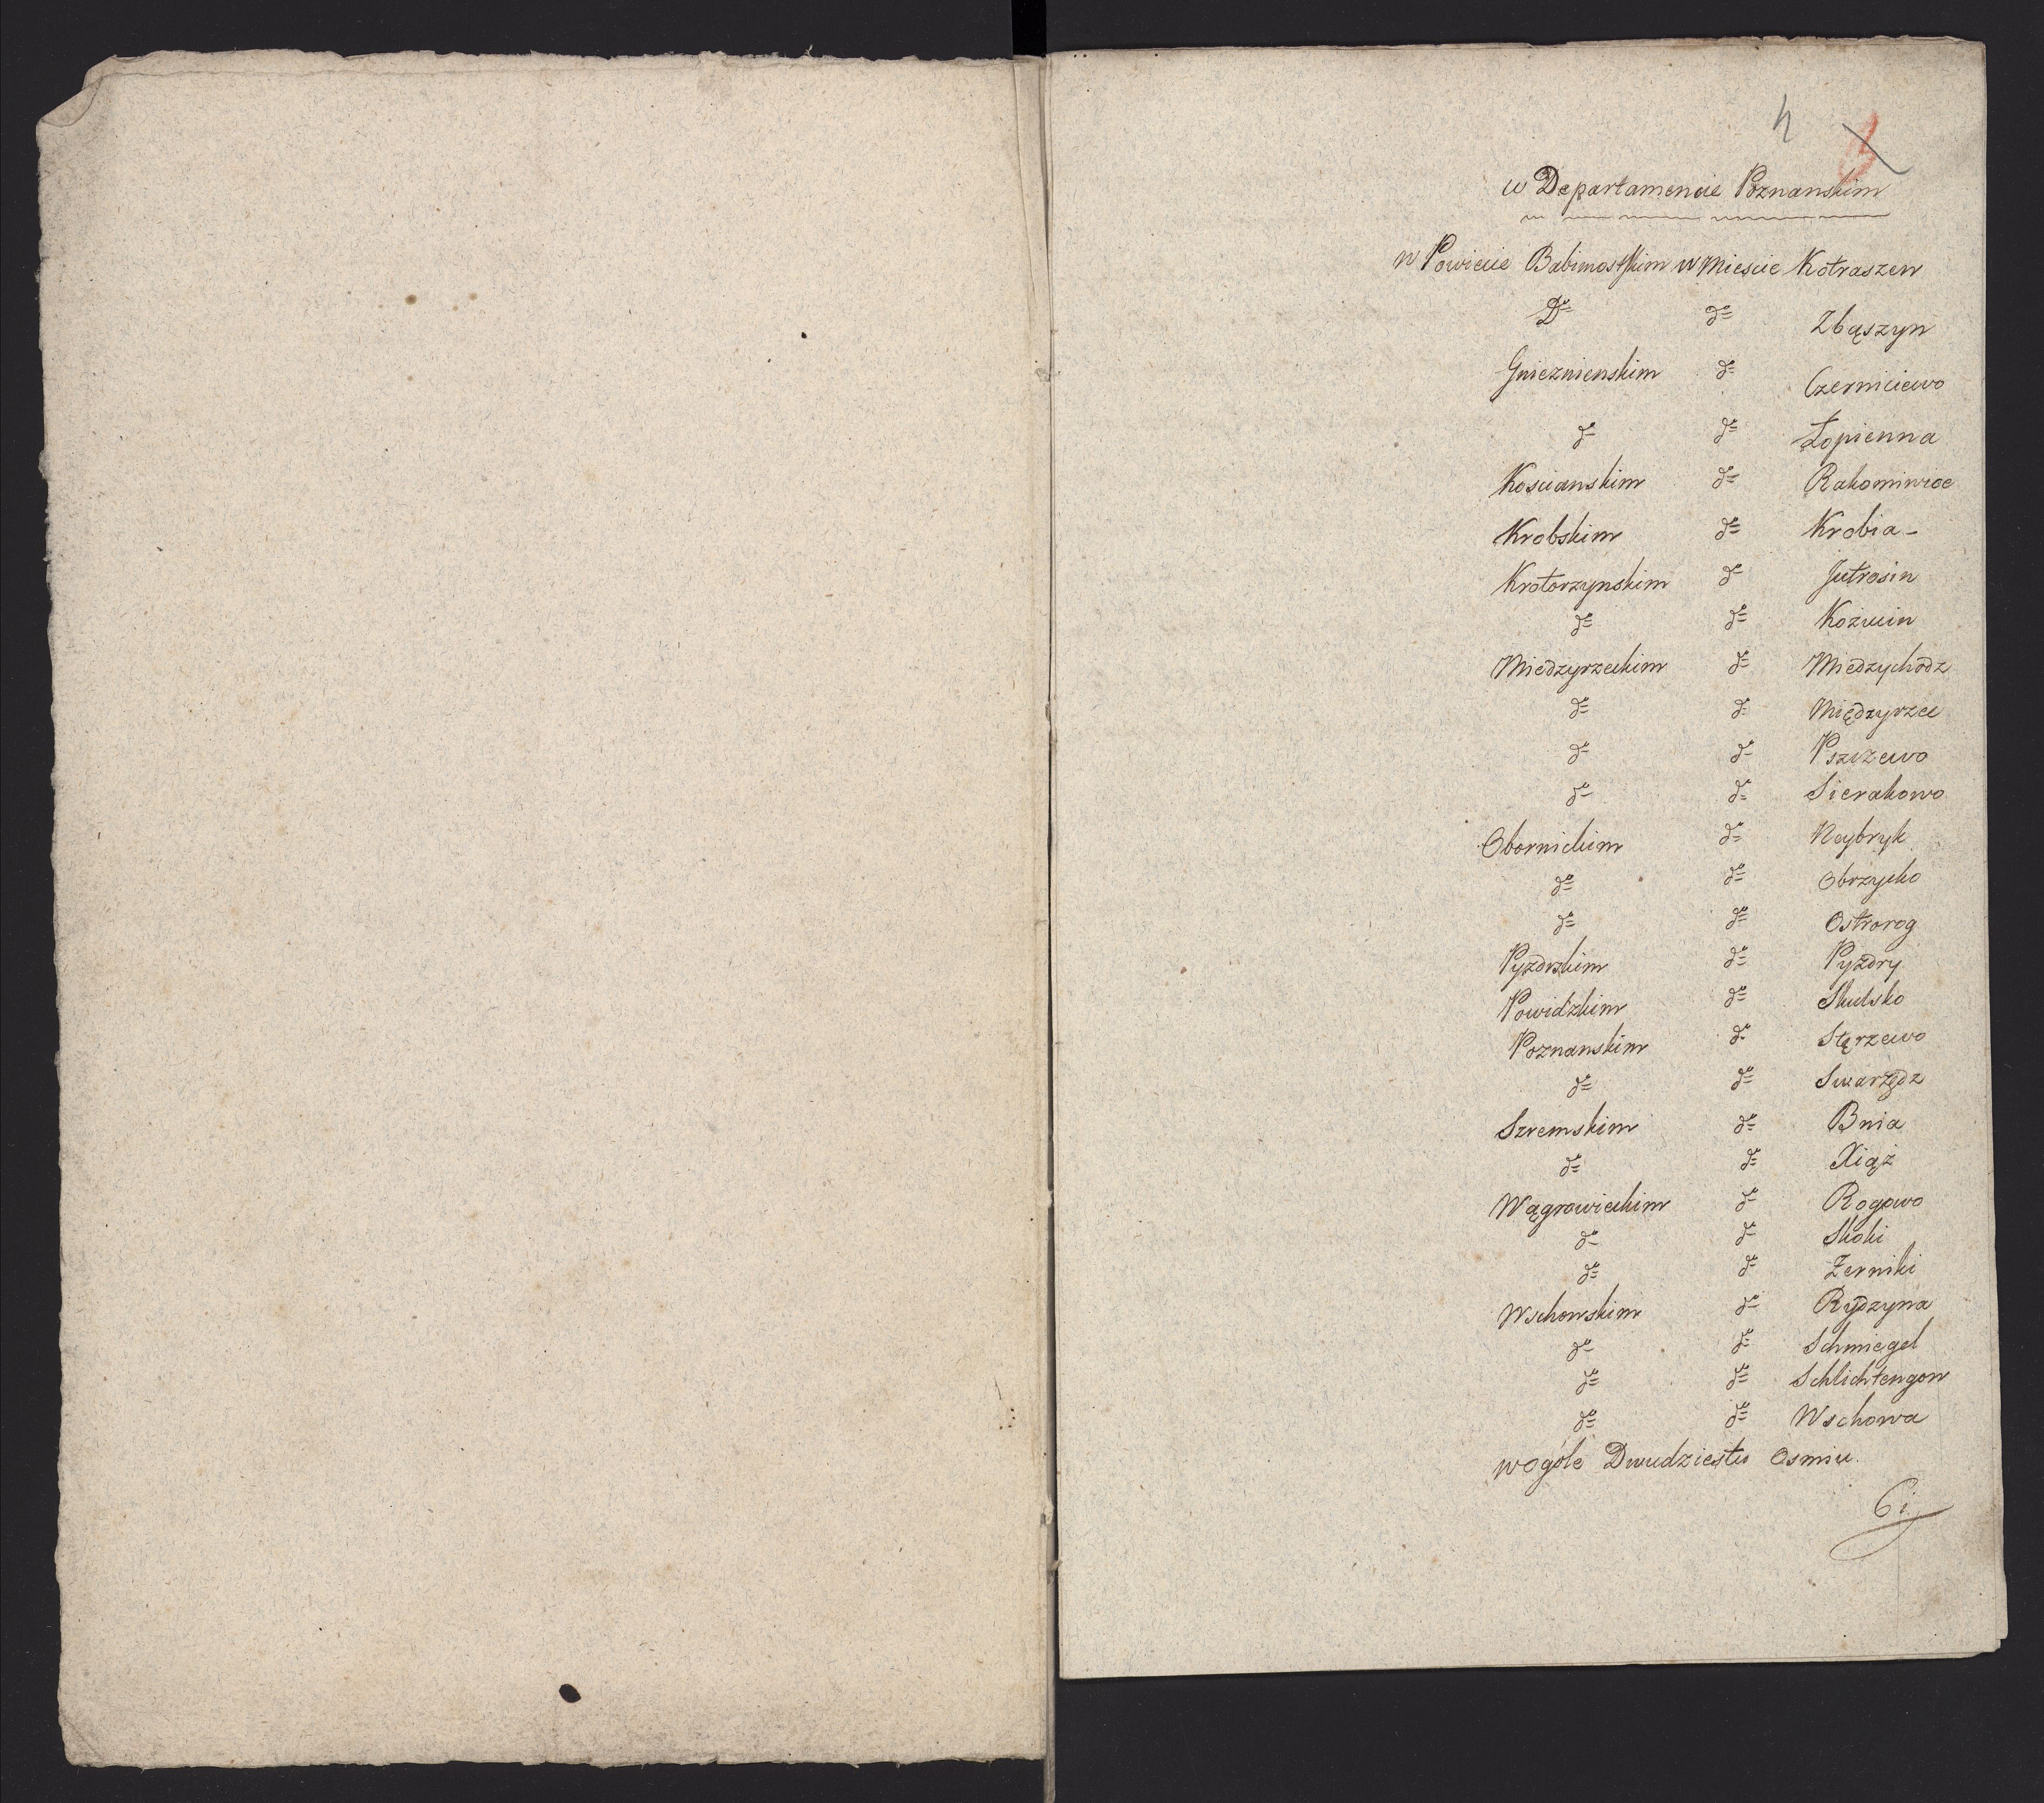 4
w Departamencie Poznanskim
w Powiecie Babimostskim w Miescie Kotraszew
Do do Zbąszyn
Gnieznienskim do Czerniciewo
do do Łopienna
Koscianskim do Rakoniwice
Krobskim do Krobia
Krotorzynskim do Jutrosin
do do Kozmin
Miedzyrzeckim do Miedzychodz
do do Międzyrzec
do do Pszczewo
do do Sierakowo
Obornickim do Reybryk
do do Obrzycko
do do Ostrorog
Pyzdrskim do Pyzdry
Powidzkim do Skulsko
Poznanskim do Stęrzewo
do do Swarzędz
Szremskim do Bnia
do do Xiąż
Wągrowieckim do Rogowo
do do Skoki
do do Zerniki
Wschowskim do Rydzyna
do do Schmiegel
do do Schlichtengow
do do Wschowa
wogóle Dwudziestu Osmiu.